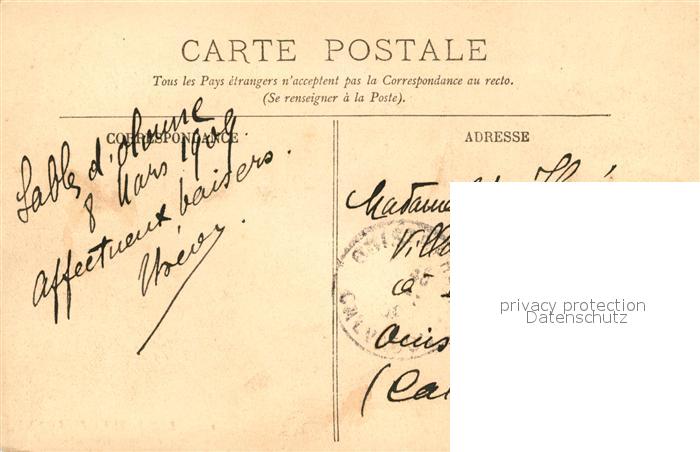 CARTE POSTALE
Tous les Pays étrangers n'acceptent pas la Correspondance au recto.
(Se renseigner à la Poste).
CORRESPONDANCE
Sables d'olonne
8 Mars 1909
affectueux baisers.
ADRESSE
Madame
Villa
à
Ouis
(Cal
OUIS
CALV
privacy protection
Datenschutz